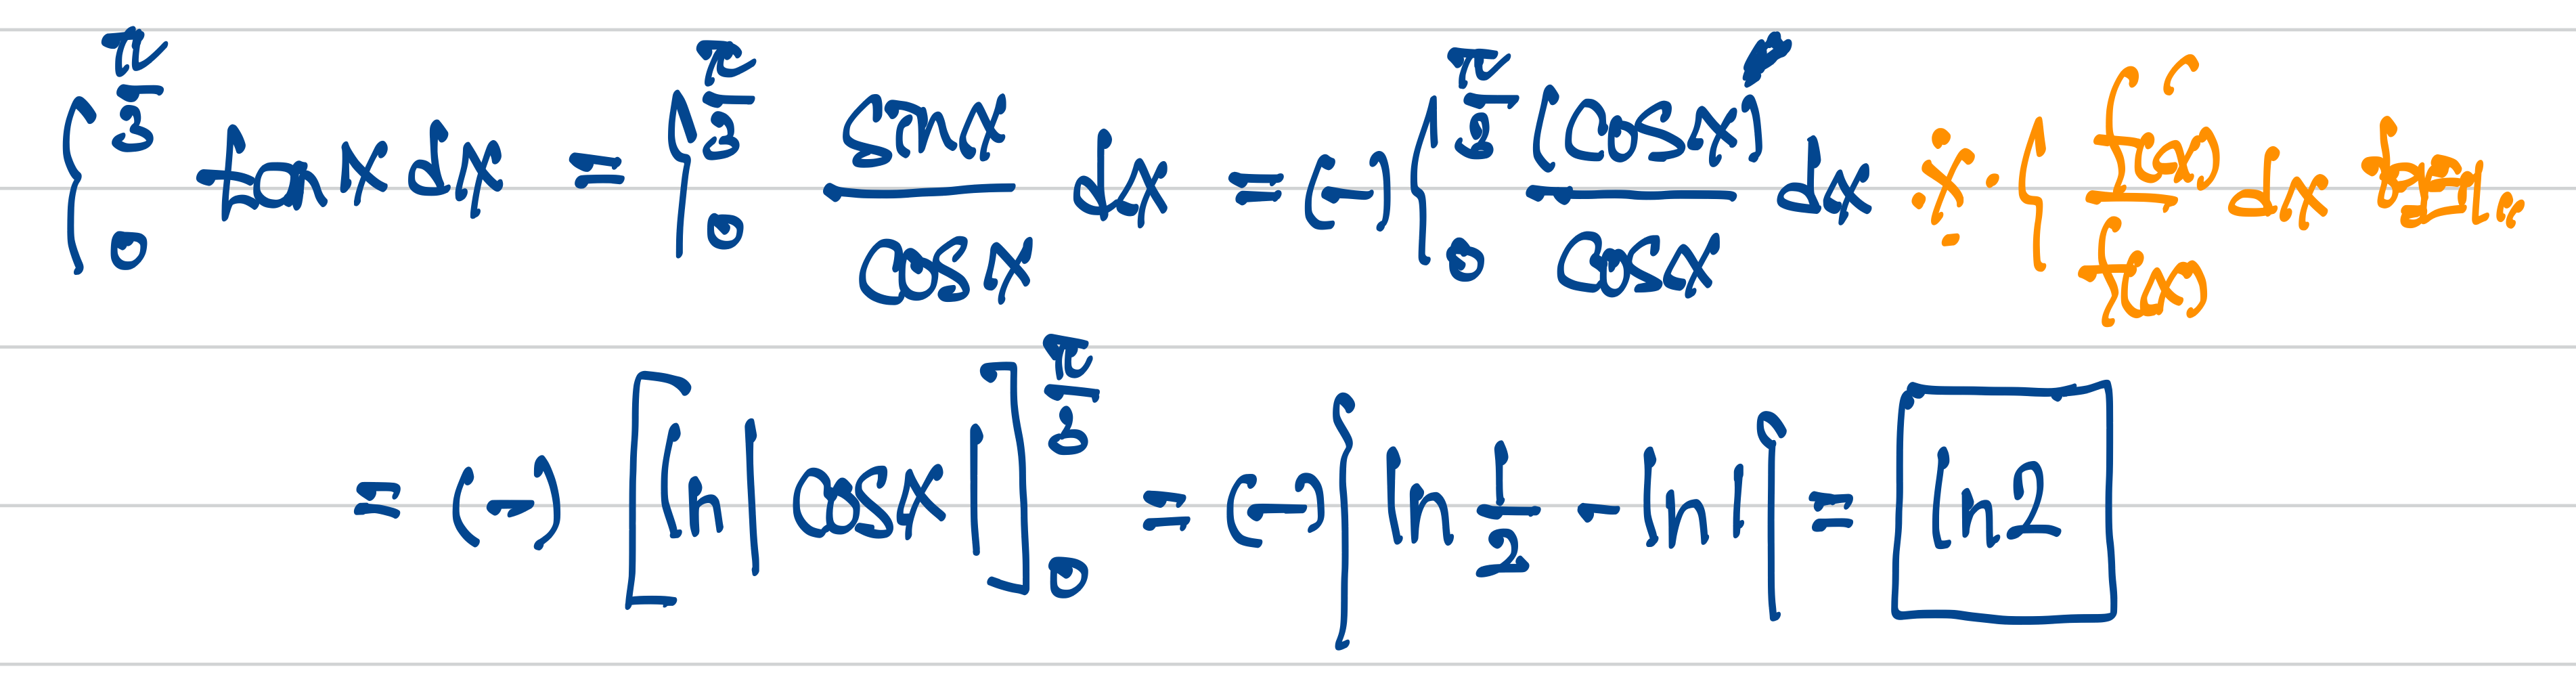 ∫₀^{π/3} tan x dx = ∫₀^{π/3} sin x / cos x dx = (-) ∫₀^{π/3} (cos x)′ / cos x dx ※. ∫ f′(x) / f(x) dx
= (-) [ln |cos x|]₀^{π/3} = (-) {ln 1/2 - ln 1} = ln 2